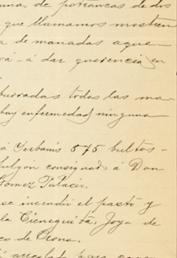 una de potrancas de dos
que llamamos mostren
a de manadas ague
rá - á dar querencia en
turadas todas las ma
hay enfermedad ninguna
á Yerbanis 575 bultos -
consignado á Don
Gomez Palacio.
se incendió el pasto y
la Cieneguita, Joya de
co de Orona.